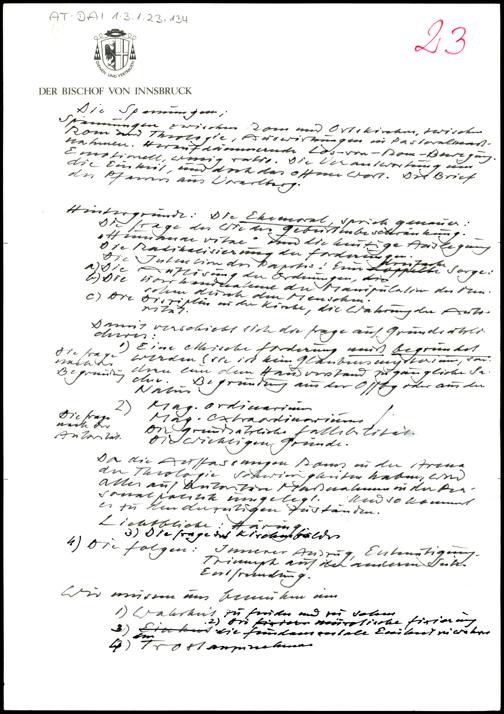 AT-DAI 1.3.1.23.134
23
DIENEN UND VERTRAUEN
DER BISCHOF VON INNSBRUCK
Die Spannungen:
Spannungen zwischen Rom und Ortskirchen, zwischen
Rom und Theologie, Auswirkungen in Pastoralmaß-
nahmen. Heraufdämmernde Los-von-Rom-Bewegung.
Emotionell, wenig ratio. Die Verantwortung um
die Einheit, und doch das offene Wort. Der Brief
des Pfarrers aus Vorarlberg.
Hintergründe: Die Ehemoral, sprich genauer:
Die Frage des Wie der Geburtenbeschränkung.
"Humanae vitae" und die heutige Auslegung
Die Radikalisierung der Forderungen.
Die Intention des Papstes: Eine Sorge:
a) Die Auflösung der Ordnungen,
b) Die der Manipulation des Men-
schen durch den Menschen.
c) Die Disziplin in der Kirche, die Wahrung der Auto-
rität.
Damit verschiebt sich die Frage auf Grundsätzli-
cheres:
1) Eine ethische Forderung muß begründet
werden (sie ist kein Glaubensmysterium, son-
dern eine dem Hausverstand zugängliche Sa-
che. Begründung aus der Offbg oder aus der
Natur.
Die Frage
nach der
Begründung
2) Mag. ordinarium
Mag. extraordinarium!
Die grundsätzliche Fallibilität
Die wichtigen Gründe.
Die Frage
nach der
Autorität.
Da die Auffassungen Roms in der Arena
der Theologie Schwierigkeiten haben, wird
alles auf autoritäre Maßnahmen in der Per-
sonalpolitik umgelegt. Und so kommt
es zu Zuständen.
Lichtblicke: Häring
3) Die Frage des Kirchenbildes
4) Die Folgen: Innerer Auszug, Entmutigung.
Triumph auf der anderen Seite.
Entfremdung.
Wir müssen uns bemühen um
1) Wahrheit zu finden und zu sehen
2) Die neurotische Fixierung
3) Einheit die fundamentale Einheit
4) Trost annehmen